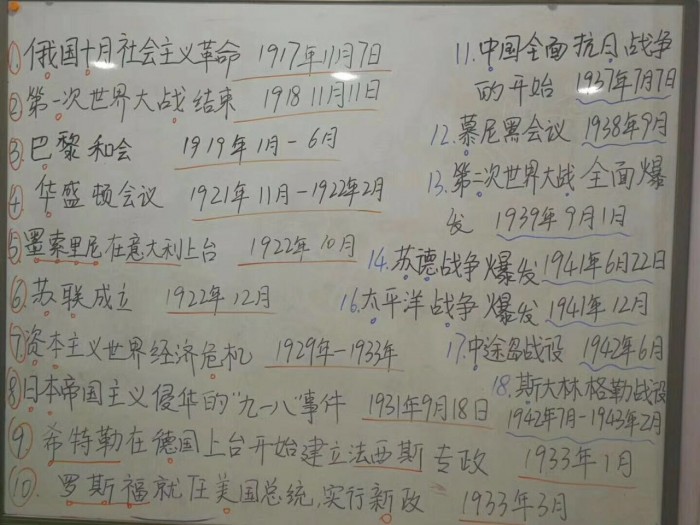 ①俄国十月社会主义革命 1917年11月7日
②第一次世界大战结束 1918 11月11日
③巴黎和会 1919年1月-6月
④华盛顿会议 1921年11月-1922年2月
⑤墨索里尼在意大利上台 1922年10月
⑥苏联成立 1922年12月
⑦资本主义世界经济危机 1929年-1933年
⑧日本帝国主义侵华的"九一八"事件 1931年9月18日
⑨希特勒在德国上台开始建立法西斯专政 1933年1月
⑩.罗斯福就任美国总统,实行新政 1933年3月
11.中国全面抗日战争
的开始 1937年7月7日
12.慕尼黑会议 1938年9月
13.第二次世界大战全面爆
发 1939年9月1日
14.苏德战争爆发 1941年6月22日
16.太平洋战争爆发 1941年12月
17.中途岛战役 1942年6月
18.斯大林格勒战役
1942年7月-1943年2月